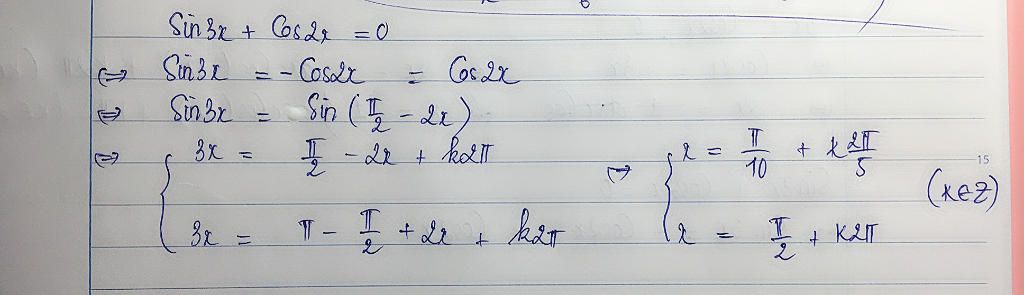 Sin3x + Cos2x = 0
⇔ Sin3x = -Cos2x = Cos2x
⇔ Sin3x = Sin(π/2 - 2x)
⇔ { 3x = π/2 - 2x + k2π ⇔ { x = π/10 + k2π/5
3x = π - π/2 + 2x + k2π x = π/2 + k2π (k∈Z)
15